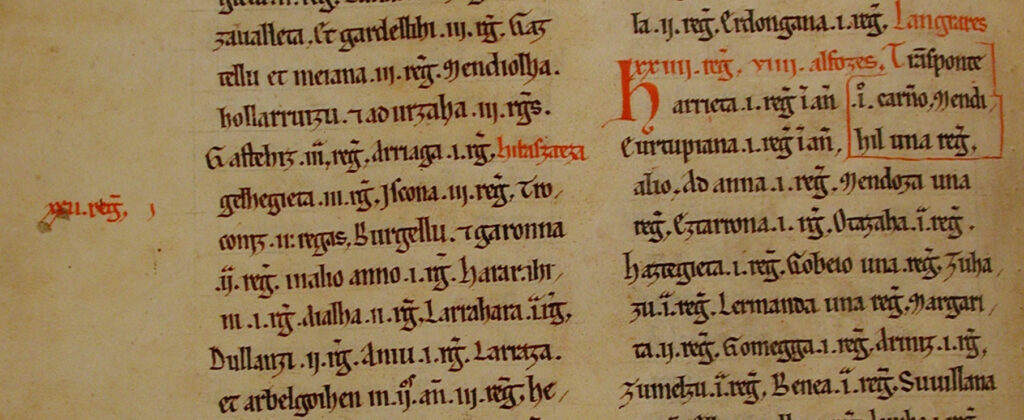 zauasteta, Et gardellihi .iii. rg̃. Gaz
tellu et meiana .iii. reg̃. Mendiolha.
hollarruizu. ⁊ adurzaha .iii. rg̃s.
Gastehiz .iii. reg̃, Arriaga .i. rg̃,
gelhegieta .iii. rg̃. Iscona .iii. reg̃, Tro-
coniz .ii. regas, Burgellu. ⁊ garonna
xxv. reg̃,
.ii. reg̃. in alio anno .i. rg̃. hararihi-
ni .i. rg̃. dialha .ii. rg̃, Larrahara .ii. rg̃,
Dullanzi .ii. rg̃. Aniu .i. rg̃. Larraza.
et arbelgoihen in .ii.os añ. .iii. reg̃, he-
la .ii. reg̃. Erdongana .i. reg̃, Langrares
xxiiii. reg̃, viii. alfozes. Trãsponte
Harrieta .i. reg̃ ĩ añ .ĩ. carño, Mendi
Curtupiana .i. reg̃ ĩ añ, hil una reg̃,
alio, Ad anna .i. reg̃. Mendoza una
reg̃, Eztarrona .i. rg̃, Otazaha .ii. reg̃.
haztegieta .i. reg̃. Gobeio una reg̃, Zuha
zu .ii. reg̃. Lermanda una reg̃, Margari-
ta .ii. reg̃. Gomegga .i. reg̃. Ariniz .i. rg̃,
Zumelzu .ii. reg̃, Benea .ii. reg̃. Suuillana